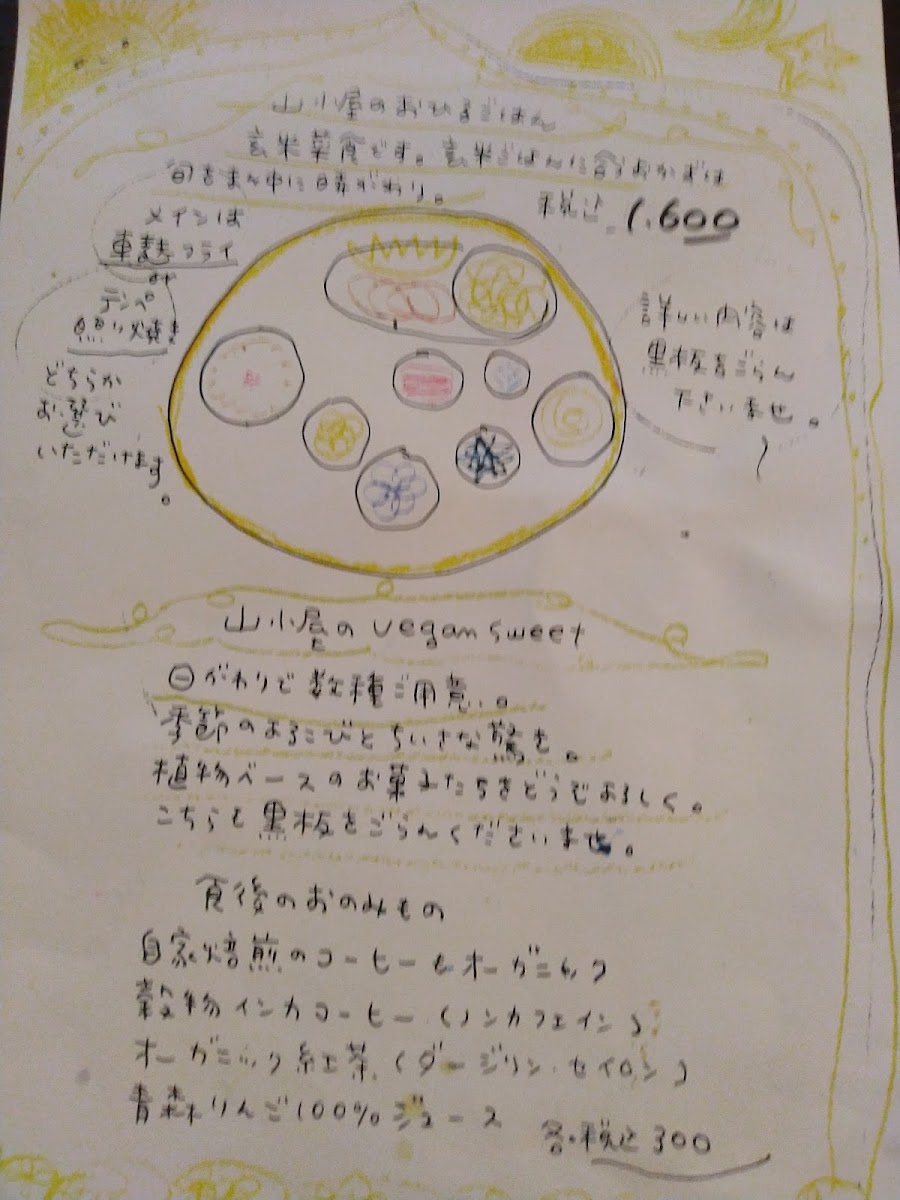 山小屋のおひるごはん
玄米菜食です。玄米ごはんに合うおかずは
旬を真ん中に日替がわり。
税込 1,600
メインは
車麩フライ
or
テンペ
照り焼き
どちらか
お選び
いただけます。
詳しい内容は
黒板をごらん
下さいませ。
山小屋の vegan sweet
日がわりで数種ご用意。
季節のよろこびとちいさな驚を。
植物ベースのお菓子たちをどうぞよろしく。
こちらも黒板をごらんくださいませ。
食後のおのみもの
自家焙煎のコーヒー オーガニック
穀物インカコーヒー(ノンカフェイン)
オーガニック紅茶(ダージリン・セイロン)
青森りんご100%ジュース
各・税込 300